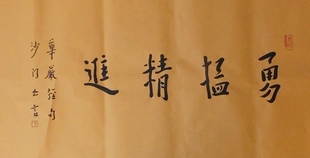 勇猛精進
華嚴經句
沙門